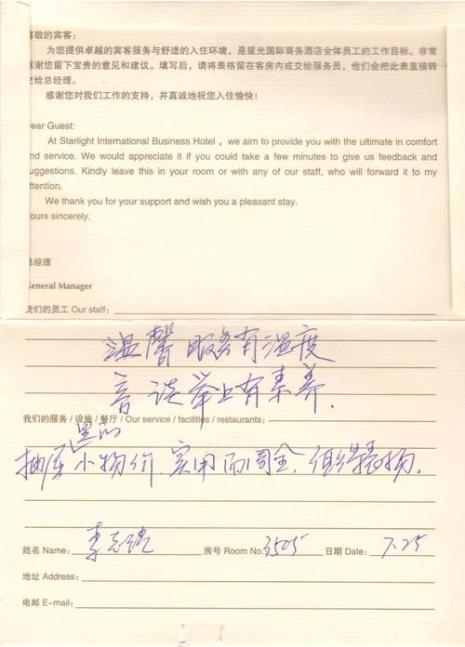 尊敬的宾客:
为您提供卓越的宾客服务与舒适的入住环境,是星光国际商务酒店全体员工的工作目标。非常
感谢您留下宝贵的意见和建议。填写后,请将表格留在客房内或交给服务员,他们会把此表直接转
交给总经理。
感谢您对我们工作的支持,并真诚地祝您入住愉快!
Dear Guest:
At Starlight International Business Hotel , we aim to provide you with the ultimate in comfort
and service. We would appreciate it if you could take a few minutes to give us feedback and
suggestions. Kindly leave this in your room or with any of our staff, who will forward it to my
attention.
We thank you for your support and wish you a pleasant stay.
Yours sincerely,
总经理
General Manager
我们的员工 Our staff:
温馨 服务有温度
言谈举止有素养.
我们的服务 / 设施 / 餐厅 / Our service / facilities / restaurants:
里的
抽屉小物价.实用而周全.值得表扬。
姓名 Name: 李志 房号 Room No. 3505 日期 Date: 7.25
地址 Address:
电邮 E-mail: